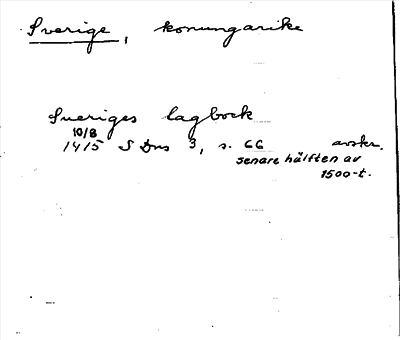 Sverige, konungarike
Sveriges lagbock
10/8
1415 S Dns 3, s. 66 avskr.
senare hälften av
1500-t.